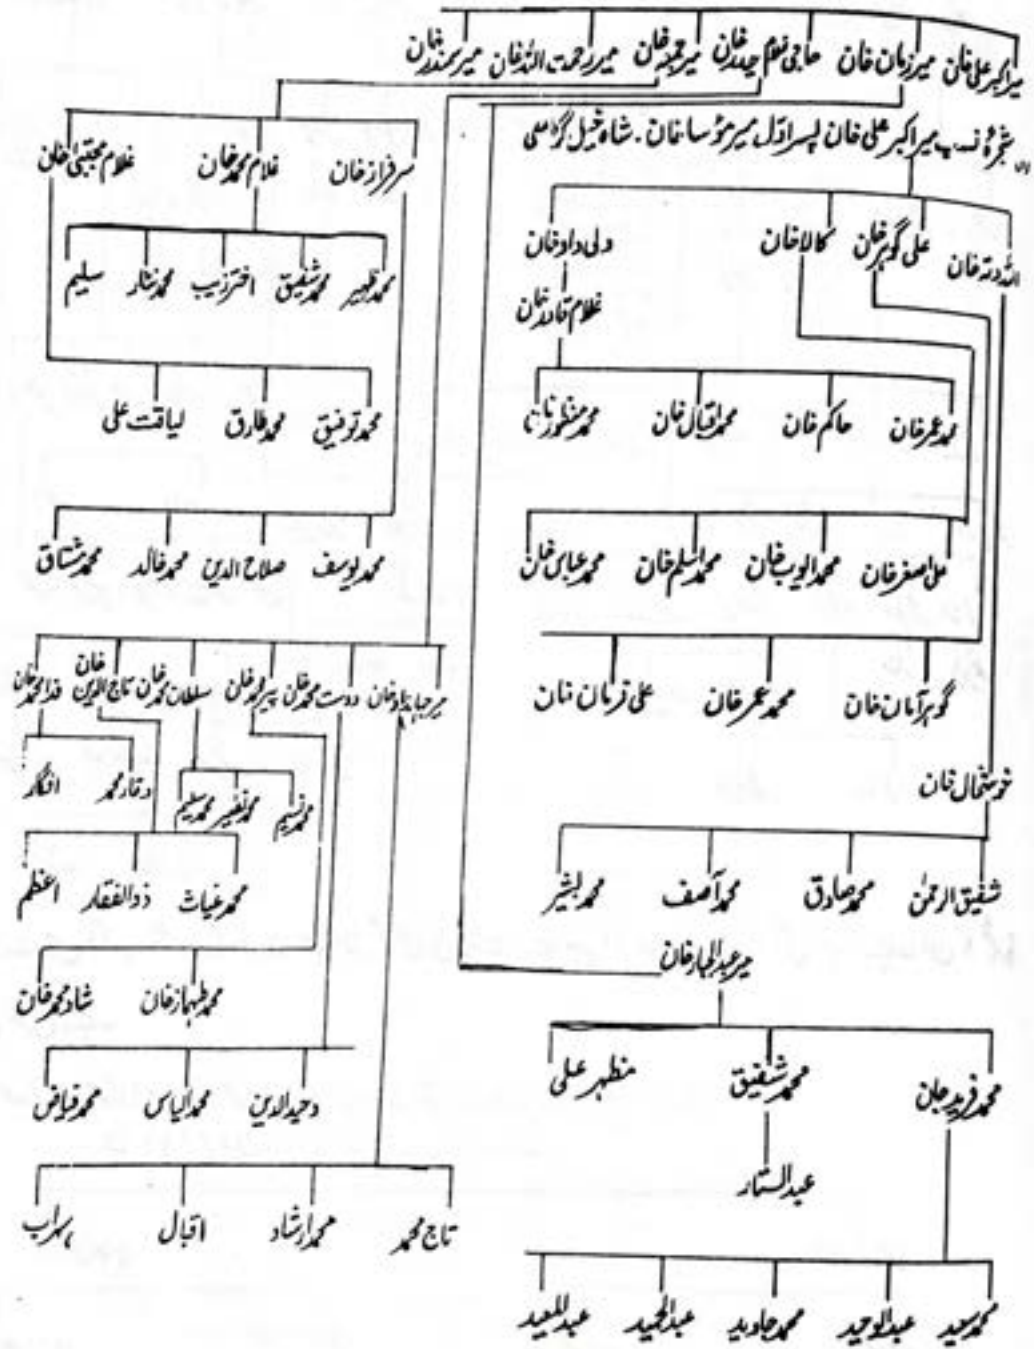 میر اکبر علی خان میر زمان خان حاجی غلام حیدر خان میر جمعہ خان میر رحمت اللہ خان میر سمندر خان
شجرۂ نسب میر اکبر علی خان پسر اوّل میر مؤسا خان ۔ شاہ خیل گڑھی
اللہ دتہ خان علی گوہر خان کالا خان ولی داد خان
غلام قادر خان
محمد عمر خان حاکم خان محمد اقبال خان محمد منظور خان
علی اصغر خان محمد ایوب خان محمد اسلم خان محمد عباس خان
گوہر آمان خان محمد عمر خان علی زمان خان
خوشحال خان
شفیق الرحمٰن محمد صادق محمد آصف محمد بشیر
میر عبدالجبار خان
محمد فرید جان محمد شفیق مظہر علی
عبدالستار
محمد سعید عبدالوحید محمد جاوید عبدالحمید عبدالمعید
سرفراز خان غلام محمد خان غلام مجتبیٰ خان
محمد ظہیر محمد شفیق اختر زیب محمد نثار سلیم
محمد توفیق محمد طارق لیاقت علی
محمد یوسف صلاح الدین محمد خالد محمد مشتاق
دوست محمد خان پیر محمد خان سلطان محمد خان تاج الدین خان فدا محمد خان
وقار محمد افگار
محمد نسیم محمد نصیر محمد سلیم
محمد غیاث ذوالفقار اعظم
محمد طہماز خان شاد محمد خان
وحید الدین محمد الیاس محمد فیاض
تاج محمد محمد ارشاد اقبال سہراب